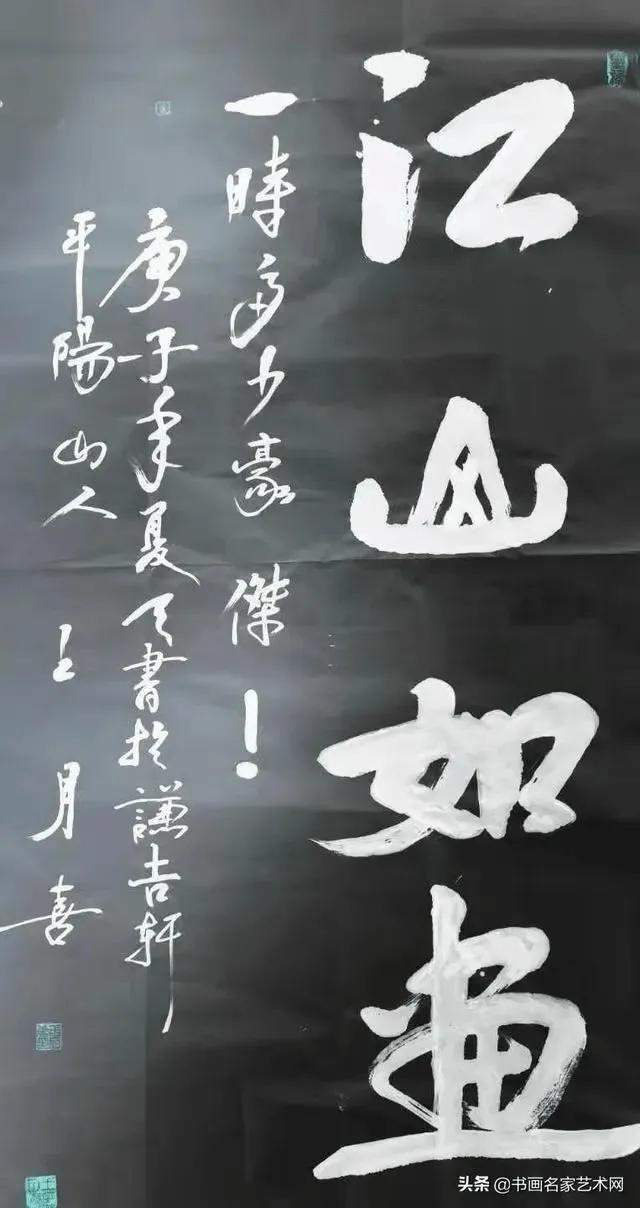 江山如画
一時多少豪傑！
庚子年夏天書於謙吉軒
平陽山人 王月喜
头条 @书画名家艺术网